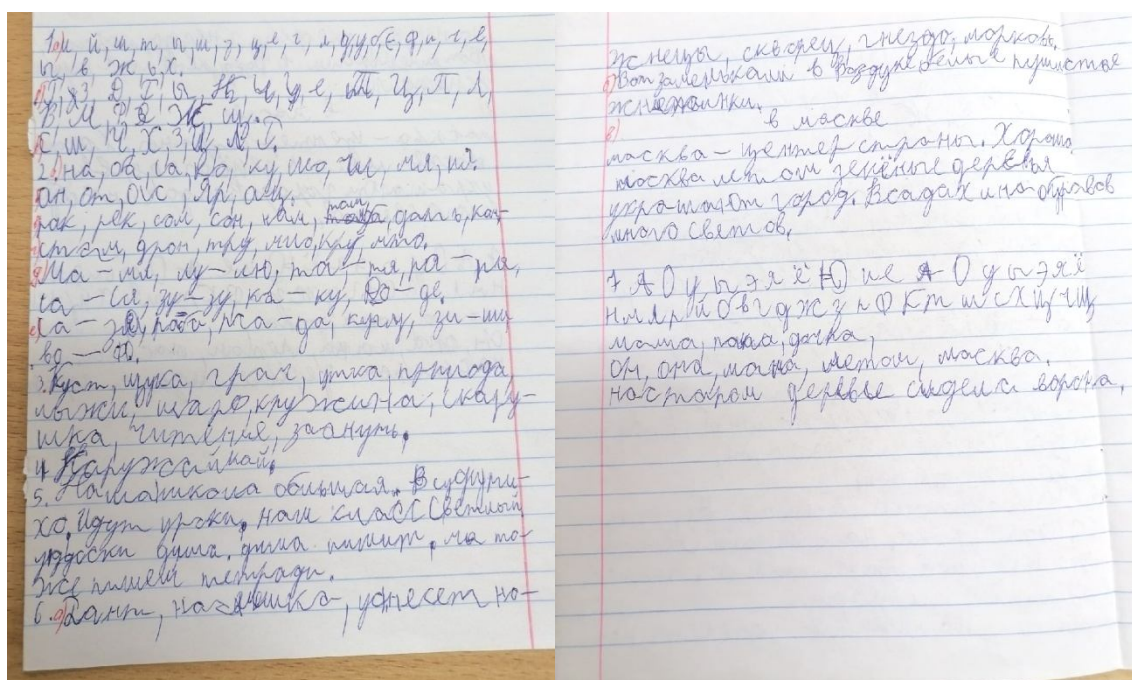 1.а) и, й, ш, т, п, ш, з, ц, е, г, л, д, у, б, Е, ф, и, г, в,
ы, в, ж, ь, х.
Б, М, Ж, щ.
Е, Ш, Ч, Х, З, Д, Л, Г.
2. на, ов, са, ко, ку, шо, чи, мл, ил.
он, от, ос, яр, ащ.
рак, рек, сом, сон, нам, там, даль, кон
стам, дрон, тру, мио, кру, мто.
Ма – мл, лу – лю, та – тя, ра – ря,
са – ся, зу – зу, ка – ку, до – де.
са – за, роба, жа – да, кугу, зи – ши
во –
3. Куст, щука, грач, утка, природа,
лыжи, шаро, кружина, скару-
шка, читения, заануть.
4. Наружай май.
5. Намашкола обильшая. В иути-
хо. Идут уроки. наш класс Светлый
удоски дима. дима пишит. ма то-
же пишем тетради.
6. а) Зант, на шка, уднесет но-
жнецы, скворец, гнездо, морковь.
б) Вотзаленькали в Воздухе белые пушистые
жнежинки.
в) в маскве
масква – центер страны. Хороша
москва летом зелёные деревья
украшают город. Всадах многобравов
много светов.
7 А О у ы э я ё Ю и е А О у ы э я ё
н м л р й О в г д ж з п Ф К т ш с Х Щ ч Щ
мама, папа, дочка,
он, она, мана, летом, масква.
настаром деревье сидела ворона,